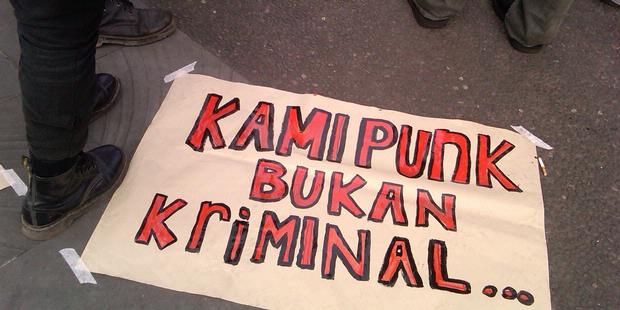 KAMI PUnK
BUKAN
KriMINAL...